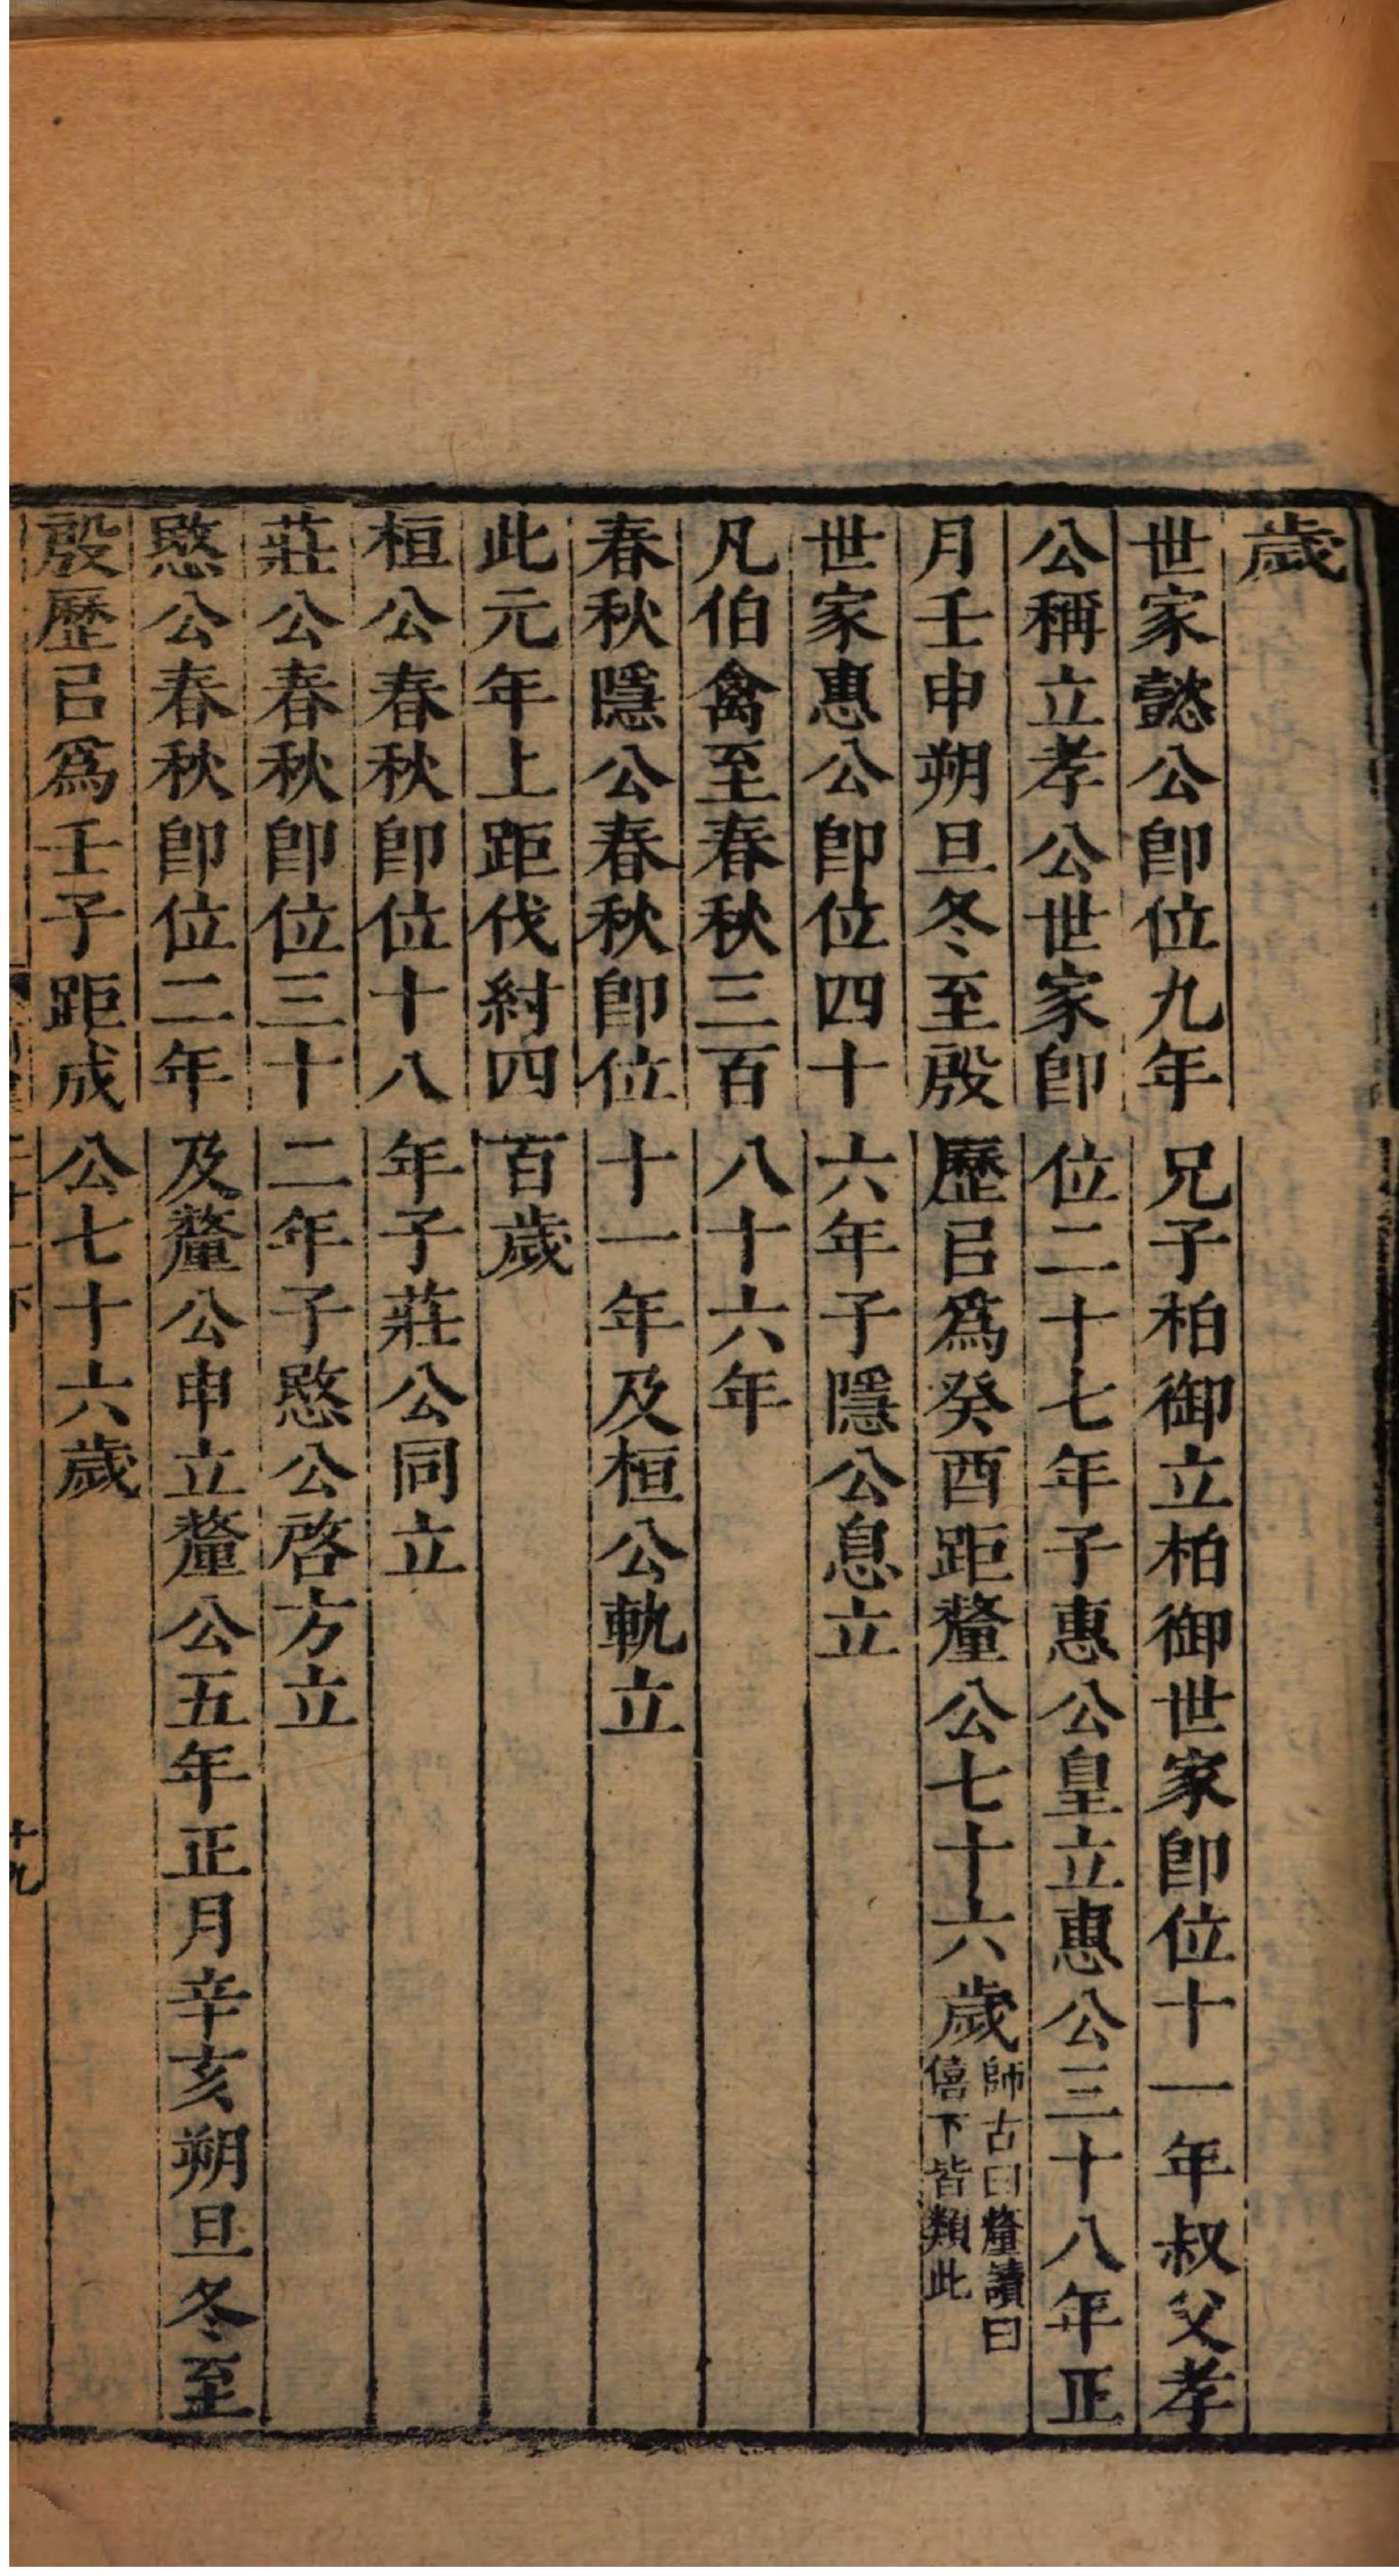 歲
世家懿公卽位九年兄子柏御立柏御世家卽位十一年叔父孝
公稱立孝公世家卽位二十七年子惠公皇立惠公三十八年正
月壬申朔旦冬至殷歷㠯爲癸酉距釐公七十六歲
師古曰釐讀曰
僖下皆類此
世家惠公卽位四十六年子隱公息立
凡伯禽至春秋三百八十六年
春秋隱公春秋卽位十一年及桓公軌立
此元年上距伐紂四百歲
桓公春秋卽位十八年子莊公同立
莊公春秋卽位三十二年子愍公啓方立
愍公春秋卽位二年及釐公申立釐公五年正月辛亥朔旦冬至
殷歷㠯爲壬子距成公七十六歲
十九